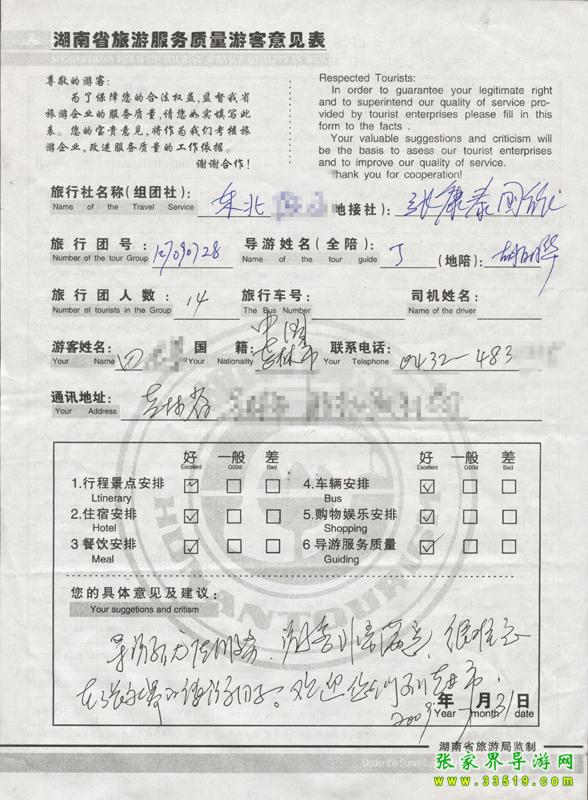 湖南省旅游服务质量游客意见表
SUGGESTIONS FORM OF TOURIST SERVICE QUALITY IN
尊敬的游客:
为了保障您的合法权益,监督我省
旅游企业的服务质量,请您如实填写此
表。您的宝贵意见,将作为我们考核旅
游企业,改进服务质量的工作依据。
谢谢合作!
Respected Tourists:
In order to guarantee your legitimate right
and to superintend our quality of service pro-
vided by tourist enterprises please fill in this
form to the facts .
Your valuable suggestions and criticism will
be the basis to asess our tourist enterprises
and to improve our quality of service.
Thank you for cooperation!
旅行社名称(组团社): 东北 地接社): 张 康泰国旅
Name of the Travel Service
旅行团号: 导游姓名(全陪): 丁 (地陪):
Number of the tour Group Name of the tour guide
旅行团人数: 14 旅行车号: 司机姓名:
Number of tourists in the Group The Bus Number Name of the driver
游客姓名: 国籍: 中国 吉林市 联系电话: 0432-483
Your Name Your Nationality Your Telephone
通讯地址: 吉林省
Your Address
好 一般 差 好 一般 差
Excellent G00d Bad Excellent G00d Bad
1.行程景点安排 4.车辆安排
Ltinerary Bus
2.住宿安排 5.购物娱乐安排
Hotel Shopping
3 餐饮安排 6 导游服务质量
Meal Guiding
HUNAN TOURISM
您的具体意见及建议:
Your suggetions and critism
2009年 7月31日
Year month
湖南省旅游局监制
Under the Surveil
张家界导游网
www.33519.com